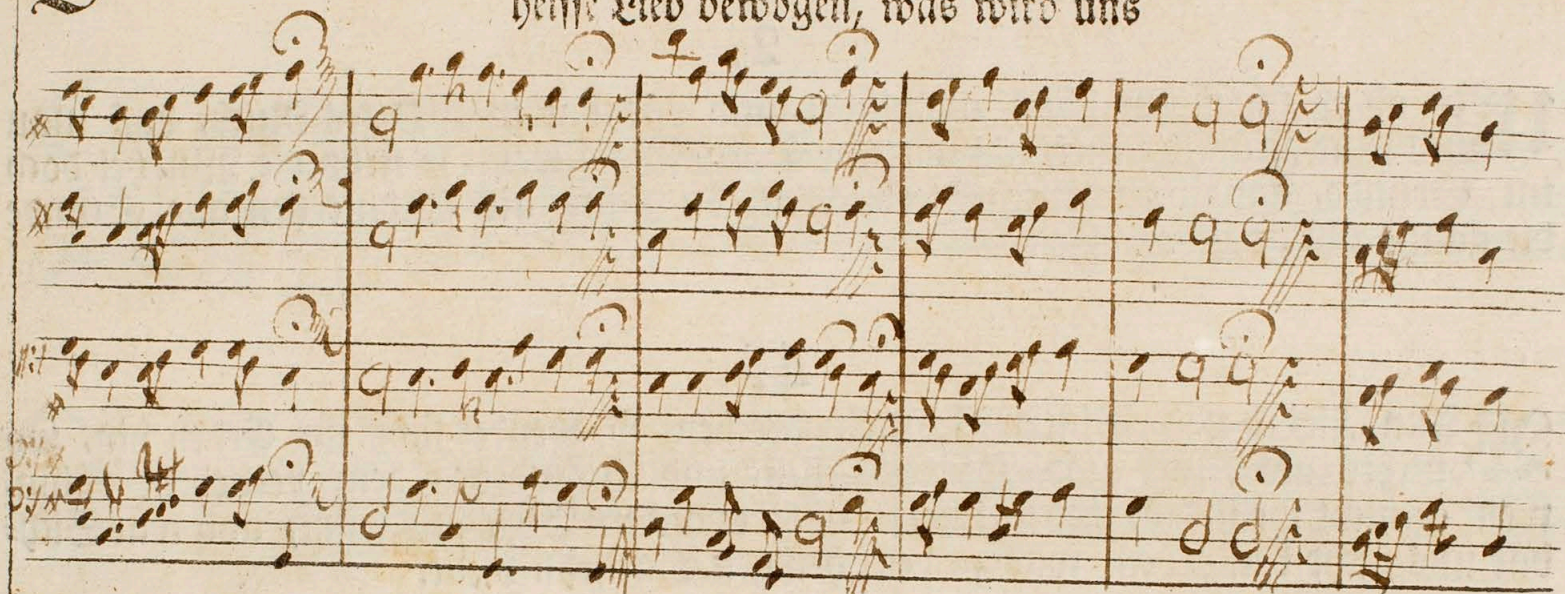 heisse Lieb bewogen, was wird uns